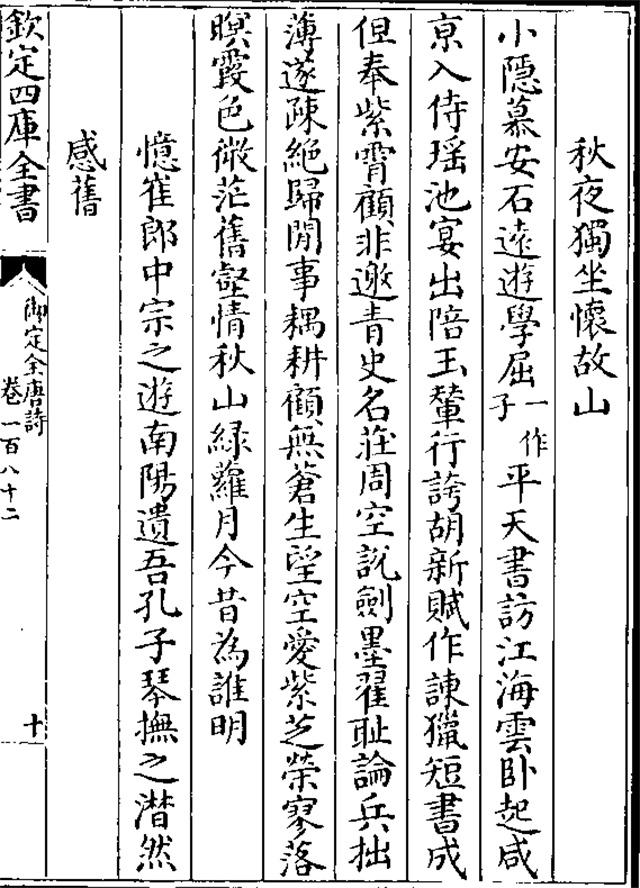 秋夜獨坐懷故山
小隱慕安石遠遊學屈一作子平天書訪江海雲卧起咸
京入侍瑶池宴出陪玉輦行誇胡新賦作諫獵短書成
但奉紫霄顧非邀青史名莊周空說劍墨翟耻論兵拙
薄遂疎絶歸閒事耦耕顧無蒼生望空愛紫芝榮寥落
暝霞色微茫舊壑情秋山緑蘿月今昔為誰明
憶崔郎中宗之遊南陽遺吾孔子琴撫之潸然
感舊
欽定四庫全書
御定全唐詩
卷一百八十二
十